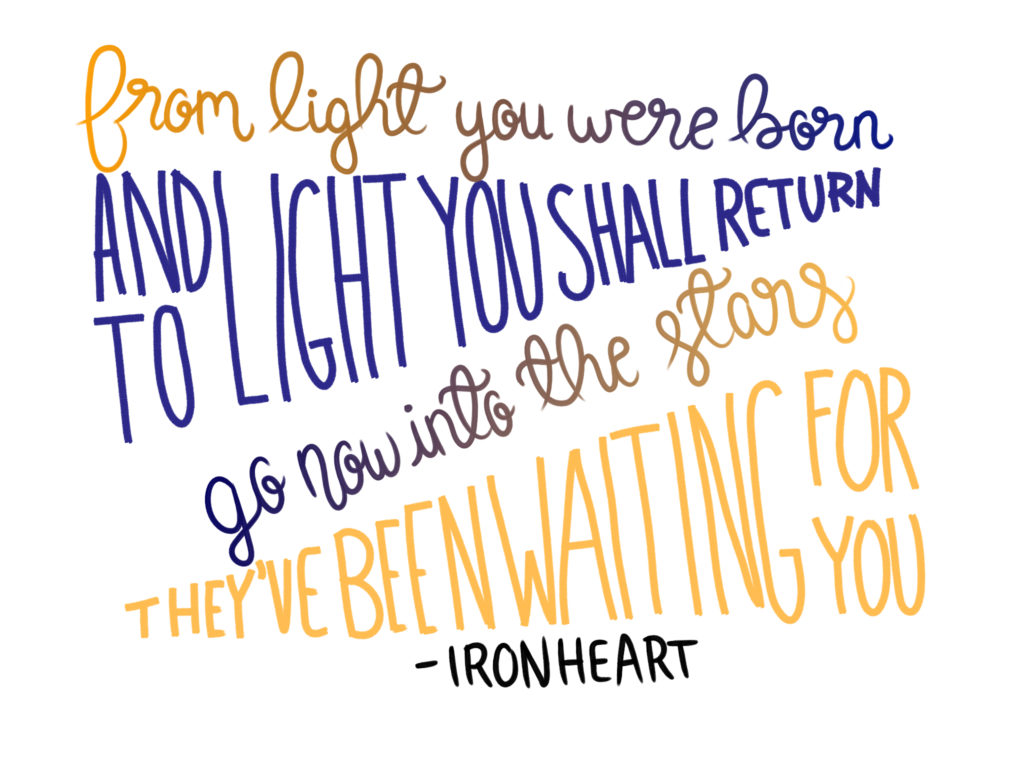 from light you were born
AND LIGHT YOU SHALL RETURN
TO
go now into the stars
THEY'VE BEEN WAITING FOR
YOU
- IRONHEART